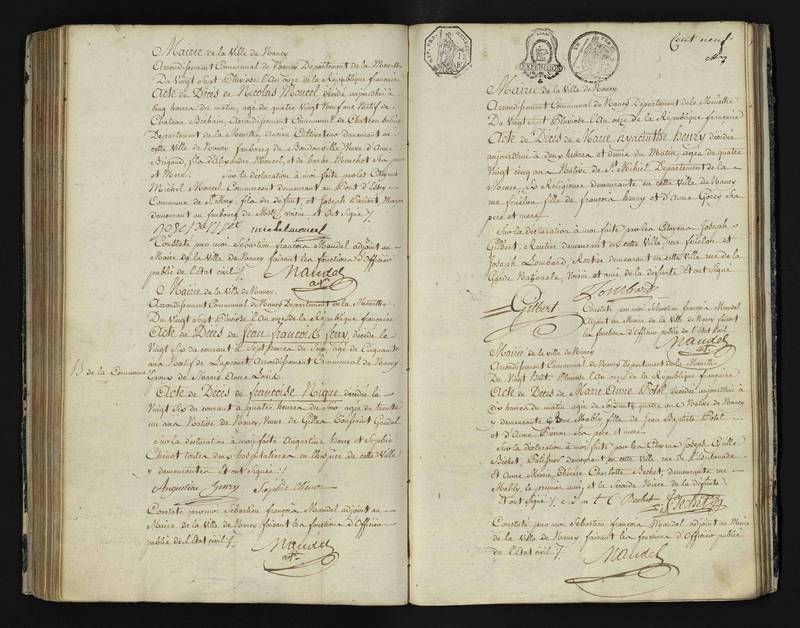 Mairie de la Ville de Nancy
Arrondissement Communal de Nancy Departement de la Meurthe
Du Vingt Sept Pluviose l'An onze de la Republique francaise
Acte de Décès de Nicolas Moucel décédé aujourd'hui à
cinq heures du matin, agé de quatre Vingt Neuf ans, Natif de
Chateau Brehain, Arrondissement Communal de Chateau Salins
Departement de la Meurthe, Ancien Cultivateur demeurant en
cette Ville de Nancy faubourg de Bondonville, Veuf d'Anne
fils d'Alexandre Moucel, et de Barbe Mouchot Ses pere
et Mere. Sur la déclaration à moi faite par les Citoyens
Michel Moucel Commercant demeurant au Pont d'Essey
Commune de St Max, fils du defunt, et Joseph
demeurant au faubourg de Metz, voisin et Ont Signé
michel moucel
Constaté par moi Sébastien françois Mandel adjoint au
Maire de la Ville de Nancy faisant les fonctions d'Officier
public de l'Etat civil
Mandel
Mairie de la Ville de Nancy
Arrondissement Communal de Nancy Departement de la Meurthe
Du Vingt Sept Pluviose l'An onze de la Republique francaise
Acte de Décès de Jean francois fery, décédé le
Vingt Six du courant à Sept heures du Soir, agé de Cinquante
ans Natif de Arrondissement Communal de Nancy
Epoux de Marie Anne
de la Commune
Acte de Décès de francoise Nique décédée le
Vingt Six du courant à quatre heures du Soir, agée de trente
un ans Native de Nancy, Veuve de Gilles Toussaint Gaudel
Sur la déclaration à moi faite Augustine henry et Sophie
Chenot toutes deux hospitalieres en l'hospice de cette Ville
y demeurantes Et ont signées
Augustine henry Sophie Chenot
Constaté par moi Sébastien françois Mandel adjoint au
Maire de la Ville de Nancy faisant les fonctions d'Officier
public de l'Etat civil
Mandel
EXPEDITION
Cent neuf
Mairie de la Ville de Nancy
Arrondissement Communal de Nancy Departement de la Meurthe
Du Vingt Sept Pluviose l'An onze de la Republique françoise
Acte de Décès de Marie hyacinthe henry décédée
aujourd'hui à deux heures et demie du Matin, agée de quatre
Vingt cinq ans Native de St Mihiel Departement de la
Meuse, Ex Religieuse demeurante en cette Ville de Nancy
rue fénélon, fille de françois henry et d'Anne Gorcy Ses
pere et mere
Sur la déclaration à moi faite par les Citoyens Joseph
Gilbert, Rentier demeurant en cette Ville rue fénélon, et
Joseph Lombard, Rentier demeurant en cette Ville rue de la
Garde Nationale, Voisin et ami de la défunte, et ont Signé
Lombard
Gilbert
Constaté par moi Sébastien françois Mandel
adjoint au Maire de la Ville de Nancy faisant
les fonctions d'Officier public de l'Etat Civil
Mandel
Mairie de la Ville de Nancy
Arrondissement Communal de Nancy Departement de la Meurthe
Du Vingt Huit Pluviose l'An onze de la Republique françoise
Acte de Décès de Marie Anne décédée aujourd'hui à
Dix heures du matin agée de Soixante quatre ans Native de Nancy
y demeurante Rue Mably fille de Jean Baptiste
et d'Anne Ses pere et mere
Sur la déclaration à moi faite par les Citoyens Joseph
Bechet, demeurant en cette Ville rue de l'Esplanade
et Anne Marie Thérèse Charlotte Bechet, demeurante rue
Mably, le premier ami et la Seconde Niece de la défunte
Et ont Signé Bechet
Constaté par moi Sébastien françois Mandel adjoint au Maire
de la Ville de Nancy faisant les fonctions d'Officier public
de l'Etat civil
Mandel